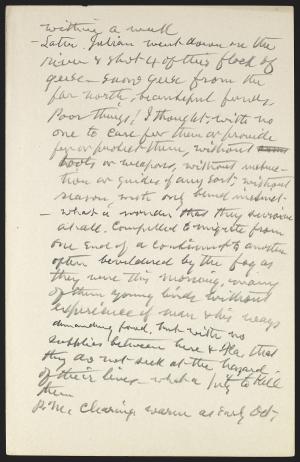 within a week
- Later. Julian went down on the
river & shot 4 of this flock of
geese - snow geese from the
far north, beautiful birds.
Poor things, I thought, with no
one to care for them or provide
for or protect them, without
tools or weapons, without instruc-
tion or guides of any sort, without
reason, with only blind instinct
- what a wonder that they survive
at all. Compelled to migrate from
one end of a continent to another
often bewildered by the fog as
they were this morning, many
of them young birds without
experience of man & his ways
demanding food, but with no
supplies between here & Fla, that
they do not seek at the hazard
of their lives - what a pity to kill
them
P.M. Clearing, warm as early Oct,